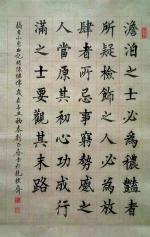 澹泊之士必為穠豔者
所疑檢飾之人必為放
肆者所忌事窮勢蹙之
人當原其初心功成行
滿之士要觀其末路